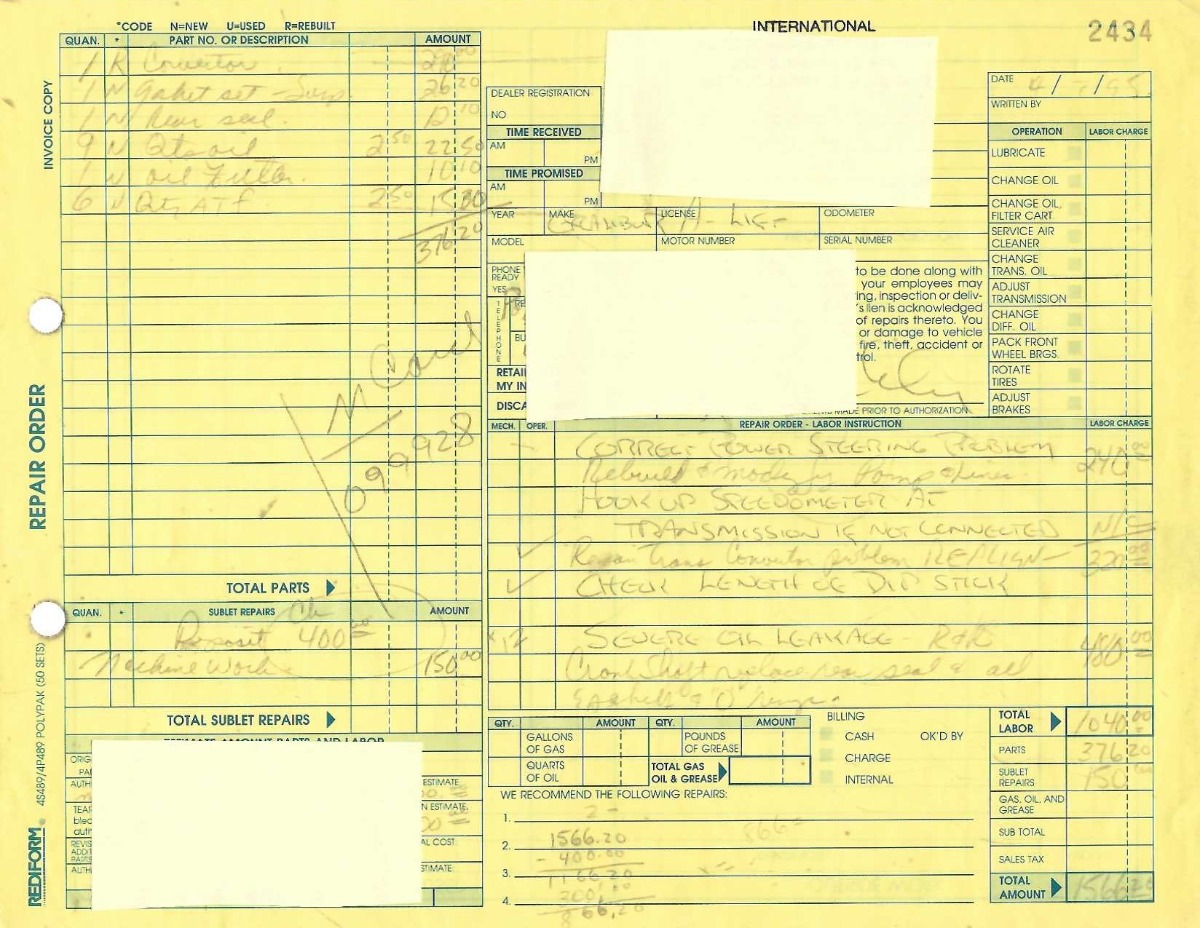 *CODE N=NEW U=USED R=REBUILT
INTERNATIONAL
2434
QUAN. * PART NO. OR DESCRIPTION AMOUNT
1 R Convertor
1 N Gasket set 26 20
1 N Rear seal 12 10
9 N Qts oil 2.50 22 50
1 N oil Filter 10 10
6 N Qts ATF 2.50 15 00
376.20
INVOICE COPY
REPAIR ORDER
REDIFORM ® 4S489/4P489 POLYPAK (50 SETS)
M Card
099928
TOTAL PARTS
QUAN. * SUBLET REPAIRS AMOUNT
Deposit 400
Machine Work 150 00
TOTAL SUBLET REPAIRS
ESTIMATE AMOUNT PARTS AND LABOR
DEALER REGISTRATION
NO
TIME RECEIVED
AM PM
TIME PROMISED
AM PM
YEAR MAKE LICENSE ODOMETER
MODEL MOTOR NUMBER SERIAL NUMBER
PHONE
READY
YES
TELEPHONE
RETAI
MY IN
DISCA
to be done along with
your employees may
ing, inspection or deliv-
's lien is acknowledged
of repairs thereto. You
or damage to vehicle
fire, theft, accident or
trol.
MADE PRIOR TO AUTHORIZATION
DATE 4/7/95
WRITTEN BY
OPERATION LABOR CHARGE
LUBRICATE
CHANGE OIL
CHANGE OIL,
FILTER CART.
SERVICE AIR
CLEANER
CHANGE
TRANS. OIL
ADJUST
TRANSMISSION
CHANGE
DIFF. OIL
PACK FRONT
WHEEL BRGS.
ROTATE
TIRES
ADJUST
BRAKES
MECH. OPER. REPAIR ORDER - LABOR INSTRUCTION LABOR CHARGE
CORRECT POWER STEERING PROBLEM 240.00
Rebuild & modify Pump & Lines
HOOK UP SPEEDOMETER AT
TRANSMISSION IF NOT CONNECTED N/C
Repair Trans Convertor problem REALIGN 320.00
CHECK LENGTH OF DIP STICK
SEVERE OIL LEAKAGE R&R 480.00
Crankshaft replace rear seal & all
Gaskets & O rings
QTY. AMOUNT QTY. AMOUNT
GALLONS
OF GAS
POUNDS
OF GREASE
QUARTS
OF OIL
TOTAL GAS
OIL & GREASE
BILLING
CASH OK'D BY
CHARGE
INTERNAL
WE RECOMMEND THE FOLLOWING REPAIRS:
1.
2. 1566.20
- 400.00
3. 1166.20
300.00
4. 866.20
TOTAL
LABOR 1040.00
PARTS 376.20
SUBLET
REPAIRS 150
GAS, OIL, AND
GREASE
SUB TOTAL
SALES TAX
TOTAL
AMOUNT 1566.20